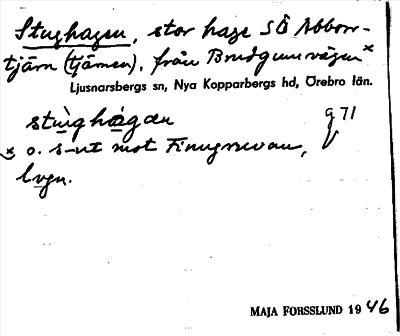 Stughagen, stor hage SÖ Abborr-
tjärn (tjärnen), från Brudgumvägen ˣ
Ljusnarsbergs sn, Nya Kopparbergs hd, Örebro län.
stùghàgæn g 71
x o. s-ut mot Finngruvan,
lvgn.
MAJA FORSSLUND 1946